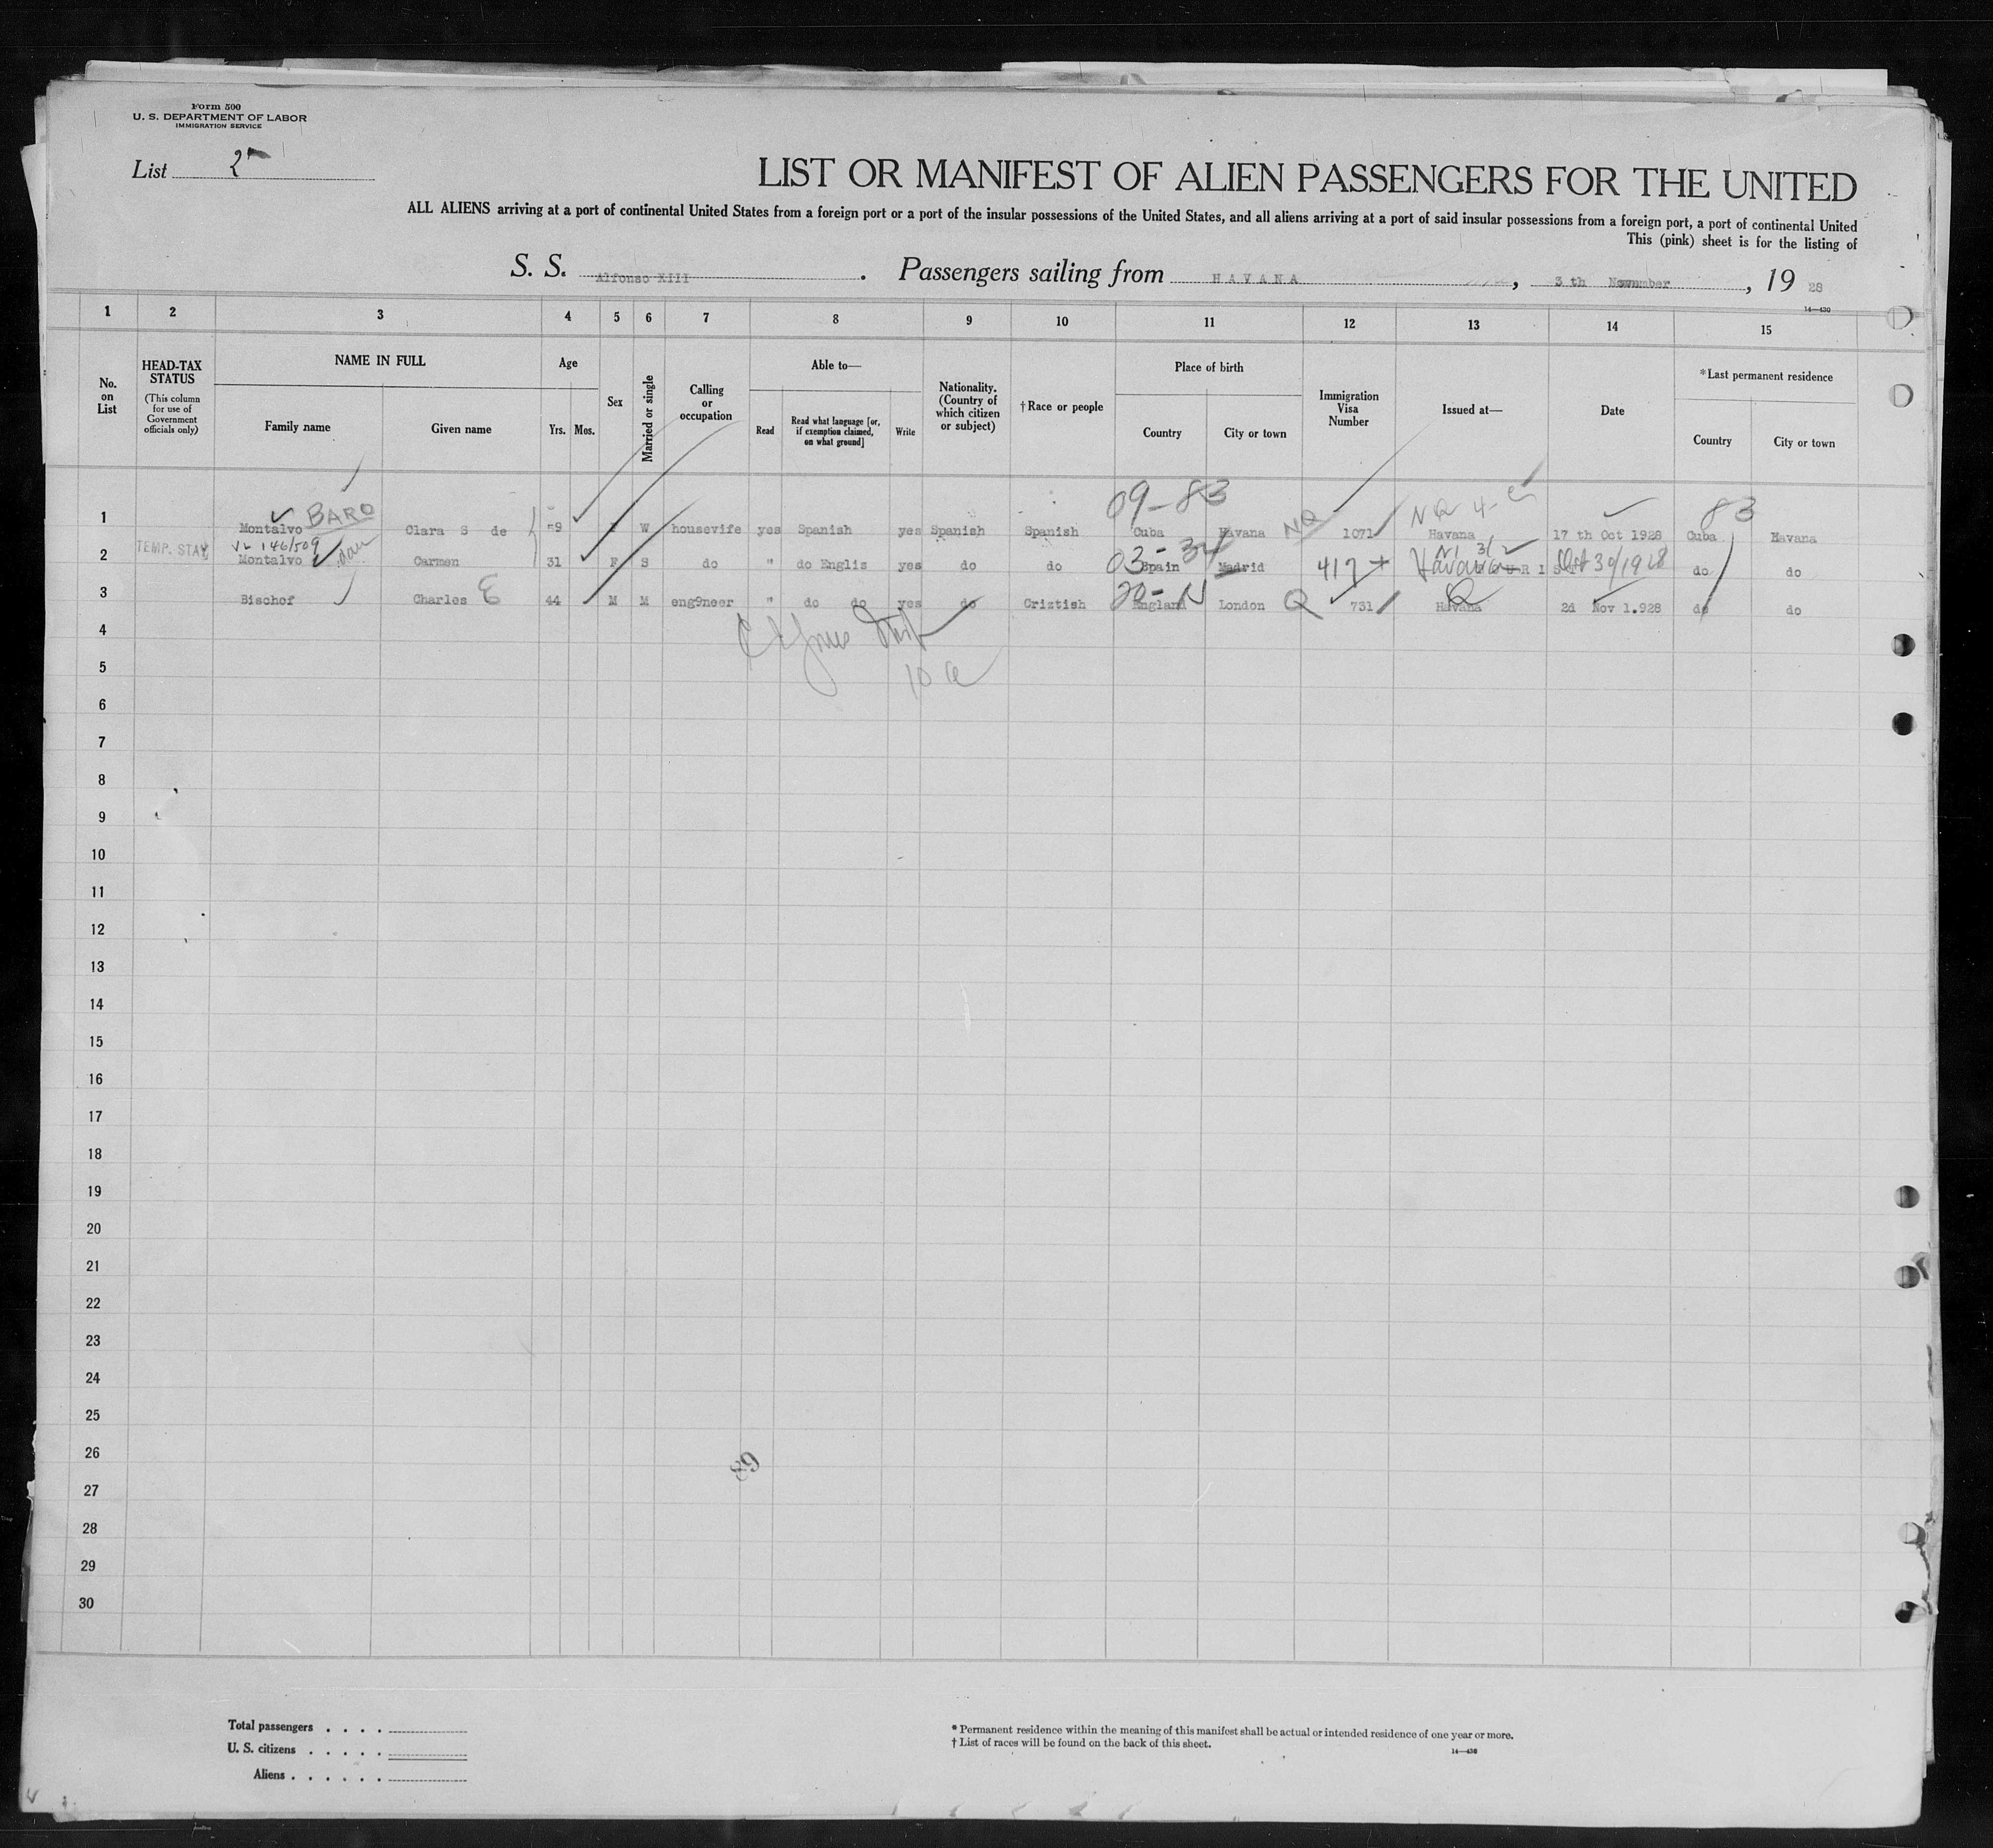 Form 500
U. S. DEPARTMENT OF LABOR
IMMIGRATION SERVICE
List 2
LIST OR MANIFEST OF ALIEN PASSENGERS FOR THE UNITED
ALL ALIENS arriving at a port of continental United States from a foreign port or a port of the insular possessions of the United States, and all aliens arriving at a port of said insular possessions from a foreign port, a port of continental United
This (pink) sheet is for the listing of
S. S. Alfonso XIII . Passengers sailing from HAVANA , 3 th November , 19 28
14—430
1 2 3 4 5 6 7 8 9 10 11 12 13 14 15
No. on List
HEAD-TAX STATUS
(This column for use of Government officials only)
NAME IN FULL
Family name
Given name
Age
Yrs. Mos.
Sex
Married or single
Calling or occupation
Able to—
Read
Read what language [or, if exemption claimed, on what ground]
Write
Nationality. (Country of which citizen or subject)
† Race or people
Place of birth
Country
City or town
Immigration Visa Number
Issued at—
Date
* Last permanent residence
Country
City or town
BARO 09-83 NQ 4- 83
1 Montalvo Clara S de 59 F W housevife yes Spanish yes Spanish Spanish Cuba Havana NQ 1071 Havana 17 th Oct 1928 Cuba Havana
VL 146/509 03-32 NI 31
2 TEMP. STAY Montalvo Carmen 31 F S do " do Englis yes do do Spain Madrid 417 Havana Oct 30/1928 do do
20-N
3 Bischof Charles E 44 M M eng9neer " do do yes do Criztish England London Q 731 Havana Q 2d Nov 1.928 do do
4
10 a
5
6
7
8
9
10
11
12
13
14
15
16
17
18
19
20
21
22
23
24
25
26
89
27
28
29
30
Total passengers . . . .
U. S. citizens . . . . .
Aliens . . . . . .
* Permanent residence within the meaning of this manifest shall be actual or intended residence of one year or more.
† List of races will be found on the back of this sheet.
14—430